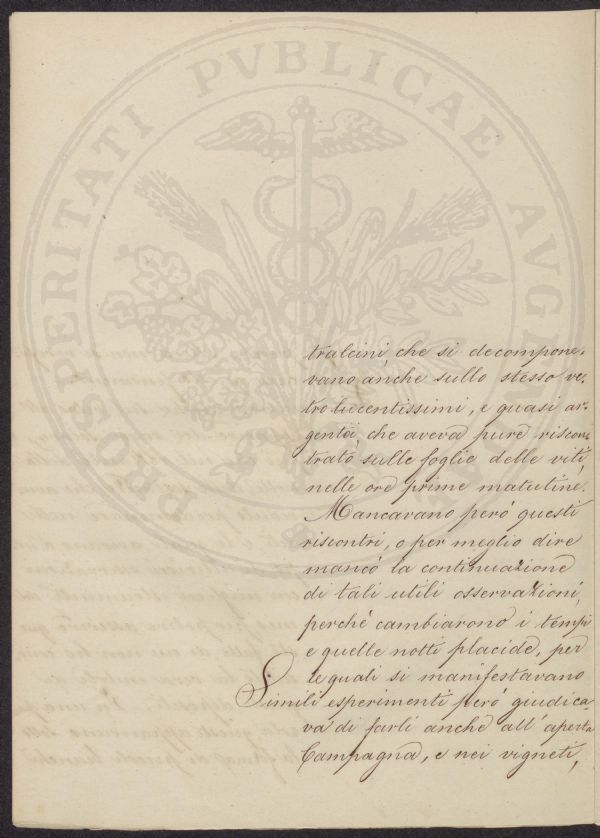 PROSPERITATI PVBLICAE AVGENDAE
tralcini, che si decompone-
vano anche sullo stesso ve-
tro lucentissimi, e quasi ar-
gentei, che aveva pure riscon-
trato sulle foglie delle viti,
nelle ore prime matutine.
Mancavano però questi
riscontri, o per meglio dire
mancò la continuazione
di tali utili osservazioni,
perchè cambiarono i tempi
e quelle notti placide, per
le quali si manifestavano
Simili esperimenti però giudica-
va di farli anche all' aperta
Campagna, e nei vigneti,